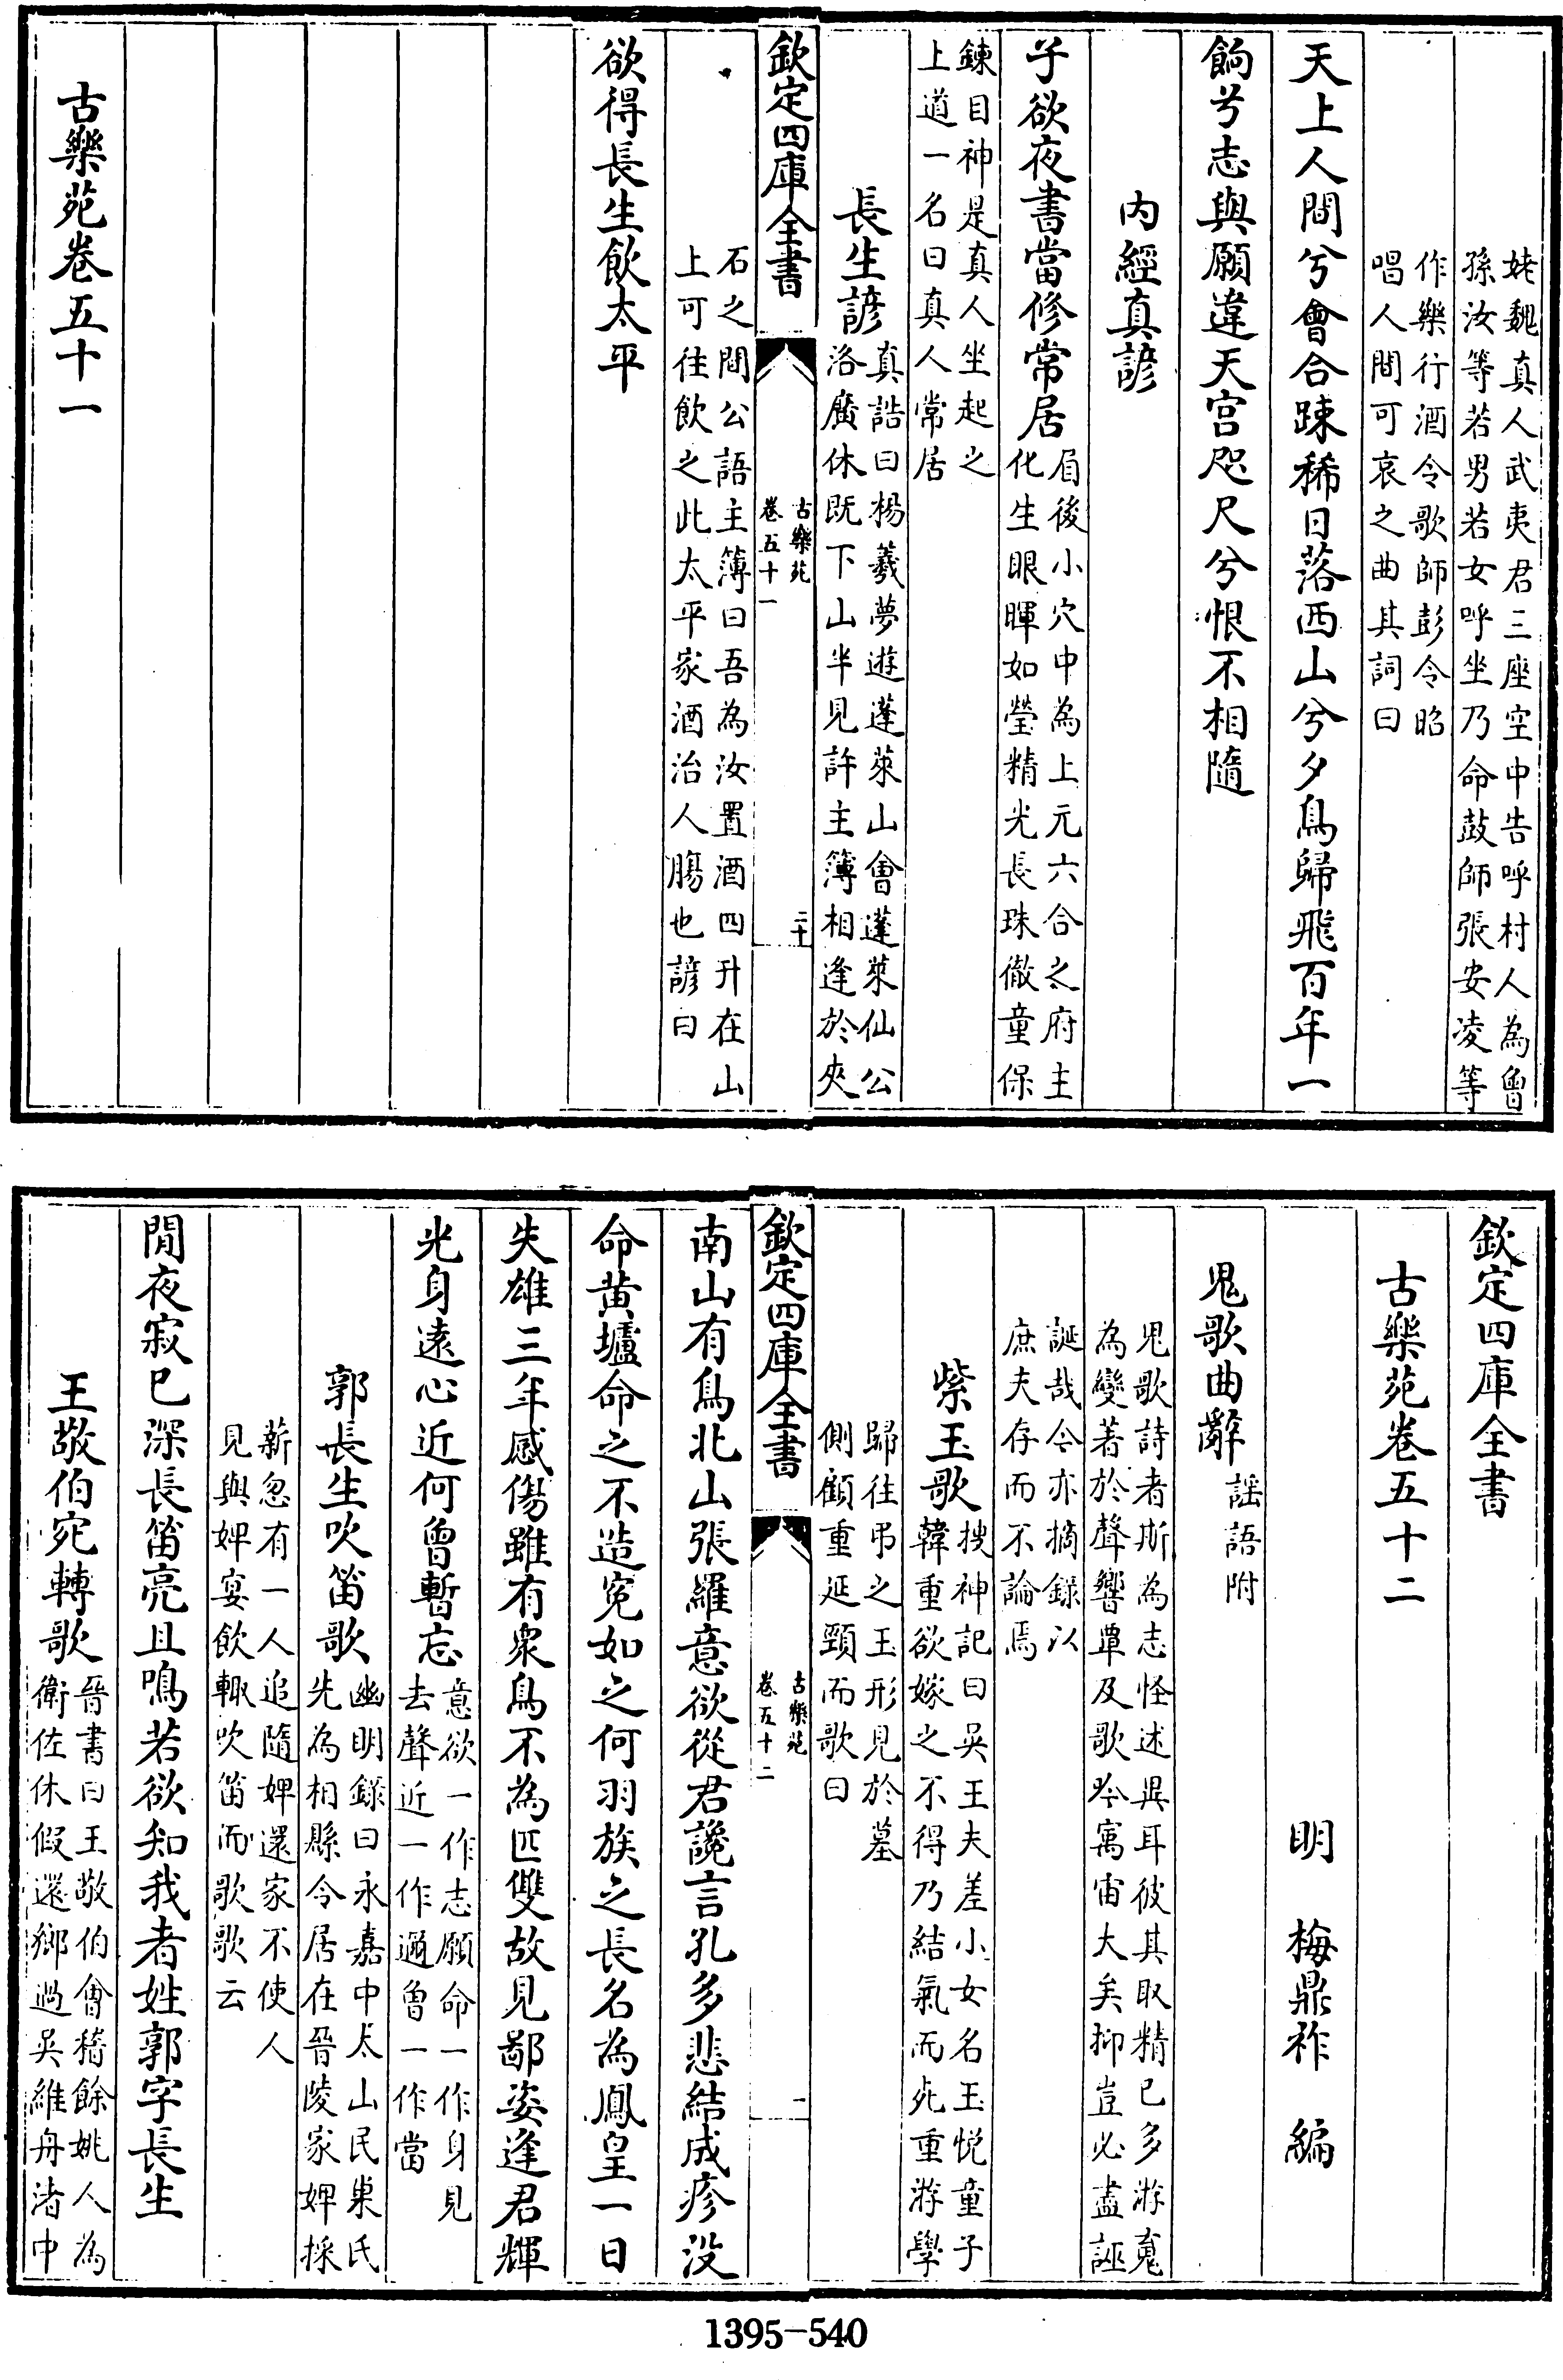 姥魏真人武夷君三座空中告呼村人為曾
孫汝等若男若女呼坐乃命鼓師張安凌等
作樂行酒令歌師彭令昭
唱人間可哀之曲其詞曰
天上人間兮會合踈稀日落西山兮夕鳥歸飛百年一
餉兮志與願違天宫咫尺兮恨不相隨
内經真諺
子欲夜書當修常居
眉後小穴中為上元六合之府主
化生眼暉如瑩精光長珠徹童保
鍊目神是真人坐起之
上道一名曰真人常居
長生諺
真誥曰楊羲夢遊蓬萊山會蓬萊仙公
洛廣休既下山半見許主簿相逢於夾
欽定四庫全書
古樂苑
卷五十一
二十
石之間公語主簿曰吾為汝置酒四升在山
上可往飲之此太平家酒治人腸也諺曰
欲得長生飲太平
古樂苑卷五十一
欽定四庫全書
古樂苑卷五十二
明 梅鼎祚 編
鬼歌曲辭
謡語附
鬼歌詩者斯為志怪述異耳彼其取精已多游䰟
為變著於聲響單及歌吟寓宙大矣抑豈必盡誣
誕哉今亦摘録以
庶夫存而不論焉
紫玉歌
搜神記曰吴王夫差小女名玉悦童子
韓重欲嫁之不得乃結氣而死重游學
歸往弔之玉形見於墓
側顧重延頸而歌曰
欽定四庫全書
古樂苑
卷五十二
一
南山有鳥北山張羅意欲從君讒言孔多悲結成疹没
命黄壚命之不造寃如之何羽族之長名為鳳皇一日
失雄三年感傷雖有衆鳥不為匹雙故見鄙姿逢君輝
光身遠心近何曾暫忘
意欲一作志願命一作身見
去聲近一作過曾一作當
郭長生吹笛歌
幽明録曰永嘉中太山民巢氏
先為相縣令居在晉陵家婢採
薪忽有一人追隨婢還家不使人
見與婢宴飲輙吹笛而歌歌云
閒夜寂已深長笛亮且鳴若欲知我者姓郭字長生
王敬伯宛轉歌
晉書曰王敬伯會稽餘姚人為
衛佐休假還鄉過吴維舟渚中
1395-540